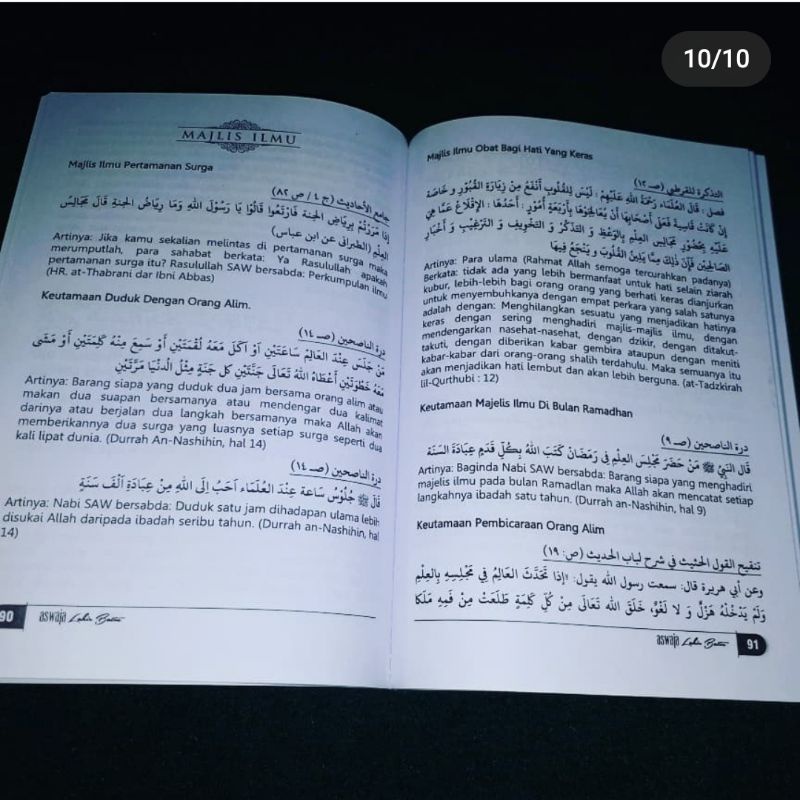 10/10
MAJLIS ILMU
Majlis Ilmu Pertamanan Surga
جامع الأحاديث (ج ٤ / ص ٨٢)
إِذَا مَرَرْتُمْ بِرِيَاضِ الجنة فَارْتَعُوا قَالُوْا يَا رَسُوْلَ اللهِ وَمَا رِيَاضُ الجنةِ قَالَ مَجَالِسُ
العِلْمِ (الطبرانى عن ابن عباس)
Artinya: Jika kamu sekalian melintas di pertamanan surga maka
merumputlah, para sahabat berkata: Ya Rasulullah apakah
pertamanan surga itu? Rasulullah SAW bersabda: Perkumpulan ilmu
(HR. at-Thabrani dar Ibni Abbas)
Keutamaan Duduk Dengan Orang Alim.
درة الناصحين (صـ ١٤)
مَنْ جَلَسَ عِنْدَ العَالِمِ سَاعَتَيْنِ اَوْ اَكَلَ مَعَهُ لُقْمَتَيْنِ أَوْ سَمِعَ مِنْهُ كَلِمَتَيْنِ أَوْ مَشَى
مَعَهُ خَطْوَتَيْنِ أَعْطَاهُ اللهُ تَعَالَى جَنَّتَيْنِ كل جَنةٍ مِثْلُ الدنْيَا مَرَّتَيْنِ
Artinya: Barang siapa yang duduk dua jam bersama orang alim atau
makan dua suapan bersamanya atau mendengar dua kalimat
darinya atau berjalan dua langkah bersamanya maka Allah akan
memberikannya dua surga yang luasnya setiap surga seperti dua
kali lipat dunia. (Durrah An-Nashihin, hal 14)
درة الناصحين (صـ ١٤)
قَالَ ﷺ جُلُوْسُ سَاعة عِنْدَ العُلَمَاء اَحَبُ اِلَى اللهِ مِنْ عِبَادَةِ اَلْفَ سَنَةٍ
Artinya: Nabi SAW bersabda: Duduk satu jam dihadapan ulama lebih
disukai Allah daripada ibadah seribu tahun. (Durrah an-Nashihin, hal
14)
90 aswaja
Majlis Ilmu Obat Bagi Hati Yang Keras
التذكرة للقرطبي (صـ ١٢)
فصل : قَالَ العُلَمَاء رَحْمَةُ اللهِ عَلَيْهِمْ : لَيْسَ لِلْقُلُوْبِ أَنْفَعُ مِنْ زِيَارَةِ القُبُوْرِ وَ خَاصَة
إِنْ كَانَتْ قَاسِيَة فَعَلَى أَصْحَابِهَا أَنْ يُعَالِجُوْهَا بِأَرْبَعَةِ أُمُوْرٍ : أَحَدُهَا : الإِقْلَاعُ عَمَّا هِيَ
عَلَيْهِ بِحُضُوْرِ مَجَالِسِ العِلْمِ بِالوَعْظِ وَ التَذَكُّرِ وَ التَخْوِيْفِ وَ التَرْغِيْبِ وَ أَخْبَارِ
الصَالِحِيْنَ فَإِنَّ ذَلِكَ مِمَّا يَلِيْنُ القُلُوْبَ وَ يَنْجَعُ فِيْهَا
Artinya: Para ulama (Rahmat Allah semoga tercurahkan padanya)
Berkata: tidak ada yang lebih bermanfaat untuk hati selain ziarah
kubur, lebih-lebih bagi orang orang yang berhati keras dianjurkan
untuk menyembuhkanya dengan empat perkara yang salah satunya
adalah dengan: Menghilangkan sesuatu yang menjadikan hatinya
keras dengan sering menghadiri majlis-majlis ilmu, dengan
mendengarkan nasehat-nasehat, dengan dzikir, dengan ditakut-
takuti, dengan diberikan kabar gembira ataupun dengan meniti
kabar-kabar dari orang-orang shalih terdahulu. Maka semuanya itu
akan menjadikan hati lembut dan akan lebih berguna. (at-Tadzkirah
lil-Qurthubi : 12)
Keutamaan Majelis Ilmu Di Bulan Ramadhan
درة الناصحين (صـ ٩)
قَالَ النَبِيُّ ﷺ مَنْ حَضَرَ مَجْلِسَ العِلْمِ فِي رَمَضَانَ كَتَبَ اللهُ بِكُلِّ قَدَمٍ عِبَادَةَ السَنَة
Artinya: Baginda Nabi SAW bersabda: Barang siapa yang menghadiri
majelis ilmu pada bulan Ramadlan maka Allah akan mencatat setiap
langkahnya ibadah satu tahun. (Durrah an-Nashihin, hal 9)
Keutamaan Pembicaraan Orang Alim
تنقيح القول الحثيث في شرح لباب الحديث (ص: ١٩)
وعن أبي هريرة قال: سمعت رسول الله يقول: «إذَا تَحَدَّثَ العَالِمُ فِي مَجْلِسِهِ بِالعِلْمِ
وَلَمْ يَدْخُلْهُ هَزْلٌ وَ لا لَغْوٌ، خَلَقَ الله تَعَالَى مِنْ كُلِّ كَلِمَةٍ طَلَعَتْ مِنْ فَمِهِ مَلَكا
aswaja 91